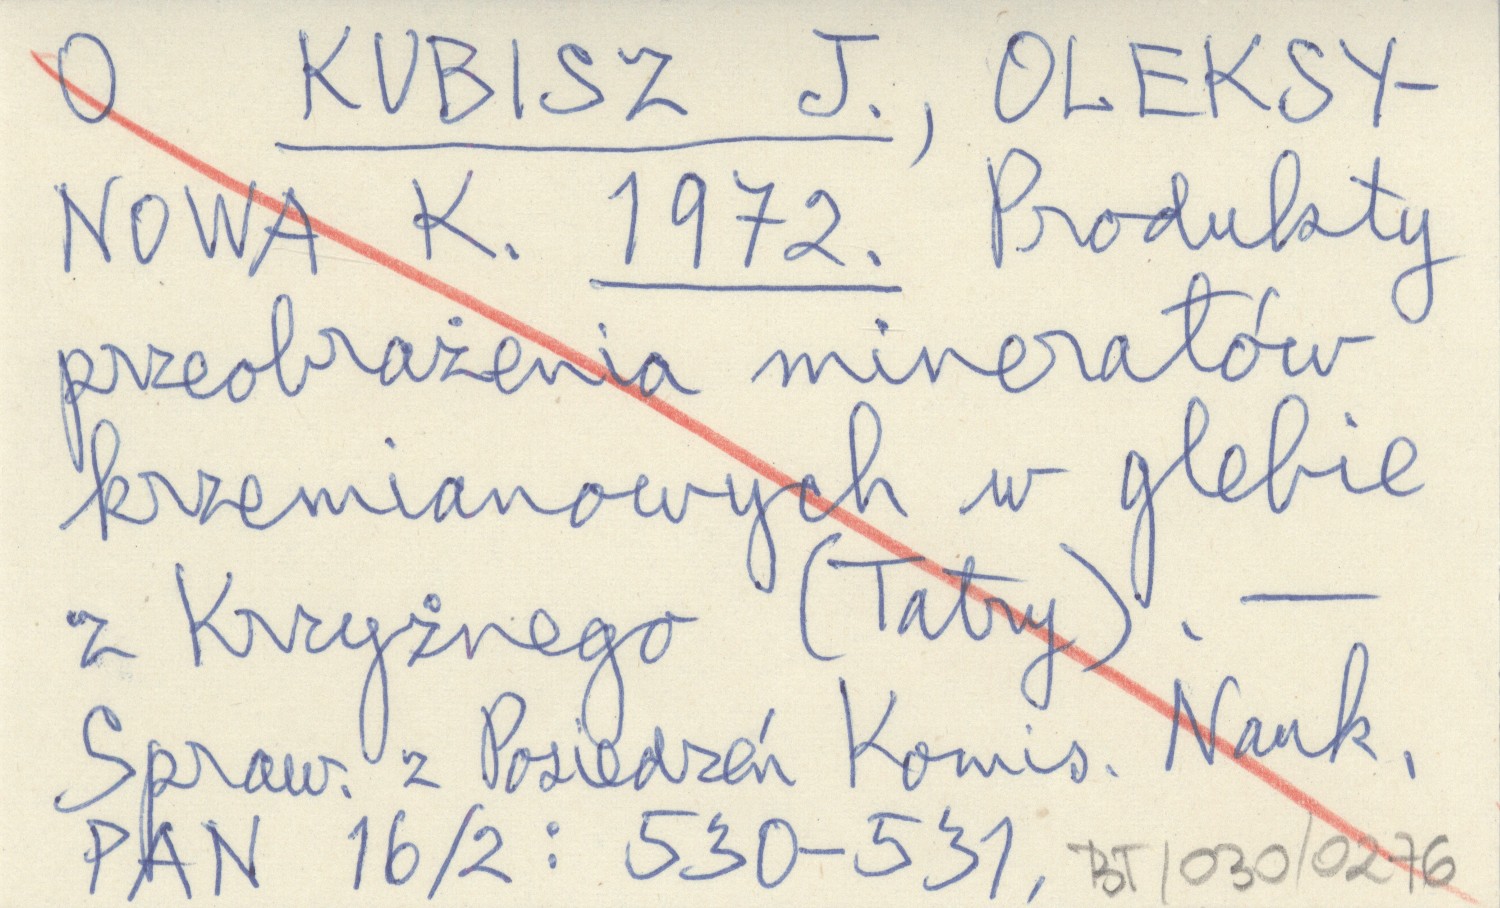 O KUBISZ J., OLEKSY-
NOWA K. 1972. Produkty
przeobrażenia minerałów
krzemianowych w glebie
z Krzyżnego (Tatry). —
Spraw. z Posiedzeń Komis. Nauk,
PAN 16/2: 530-531,
BT/030/0276